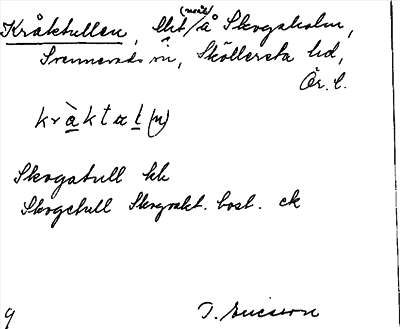 Kråktullen, lht (mosse) å Skogaholm,
Svennevads sn, Sköllersta hd,
Ör. l.
kràktat (n)
Skogatull kk
Skogatull Skogvakt. bost. ek
T. Ericsson